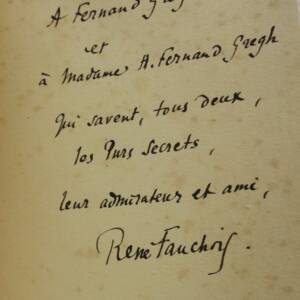 A Fernand Gregh
et
à Madame H. Fernand Gregh
qui savent, tous deux,
les Purs Secrets,
leur admirateur et ami,
René Fauchois.